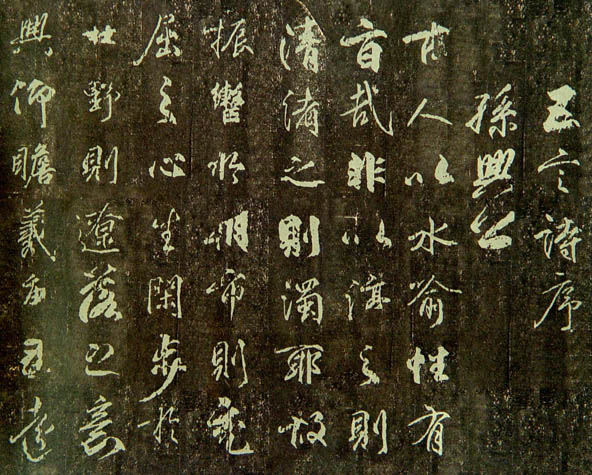 五言詩序
孫興公
古人以水喻性有
旨哉非以渟之則
清淆之則濁耶故
振轡於朝市則充
屈之心生閑步於
林野則遼落之意
興仰瞻羲唐已遠